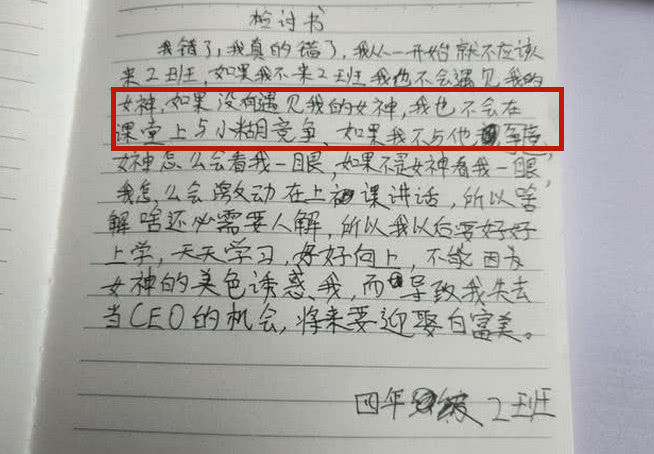 检讨书
我错了,我真的错了,我从一开始就不应该
来2班,如果我不来2班我也不会遇见我的
女神,如果没有遇见我的女神,我也不会在
课堂上与小糊竞争、如果我不与他争
女神怎么会看我一眼,如果不是女神看我一眼,
我怎么会激动在上课讲话,所以啥
解啥还必需要人解,所以我以后要好好
上学,天天学习,好好向上,不能因为
女神的美色诱惑、我,而导致我失去
当CEO的机会,将来要迎娶白富美。
四年级2班